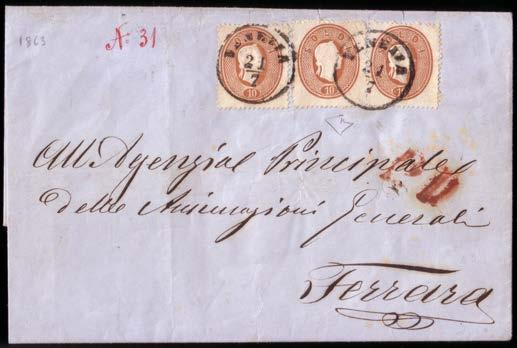 1863
N. 31
VENEZIA
21
7
10
SOLDI
10
SOLDI
10
VENEZIA
P.D.
All'Agenzia Principale
delle Assicurazioni Generali
Ferrara